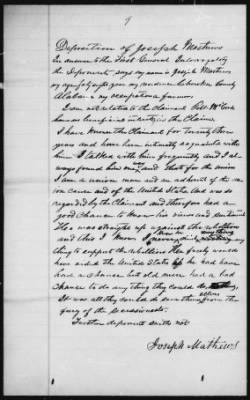 9
Deposition of Joseph Mathews
In answer to the First General Interrogatory
the Deponent says my name is Joseph Mathews
my age fifty eight years my residence Cherokee County
Alabama my occupation farmer
I am not related to the Claimant
have no beneficial interest in the Claim
I have known the Claimant for twenty three
years and have been intimately acquainted with
him I talked with him frequently and I al
ways found him and that for the union
I am a union man and an adherent of the un
ion cause and of the United States and was so
regarded by the Claimant and therefore had a
good chance to know his views and sentiments
He was straight up against the rebellion
and this I know I never knew him to do anything
or say any
thing to support the rebellion He surely would
have aided the United States if he had have
had a chance but old men had a bad
chance to do any thing they could do nothing
It was all they could do to save themselves from the
fury of the secessionists
Further deponent saith not
Joseph Mathews